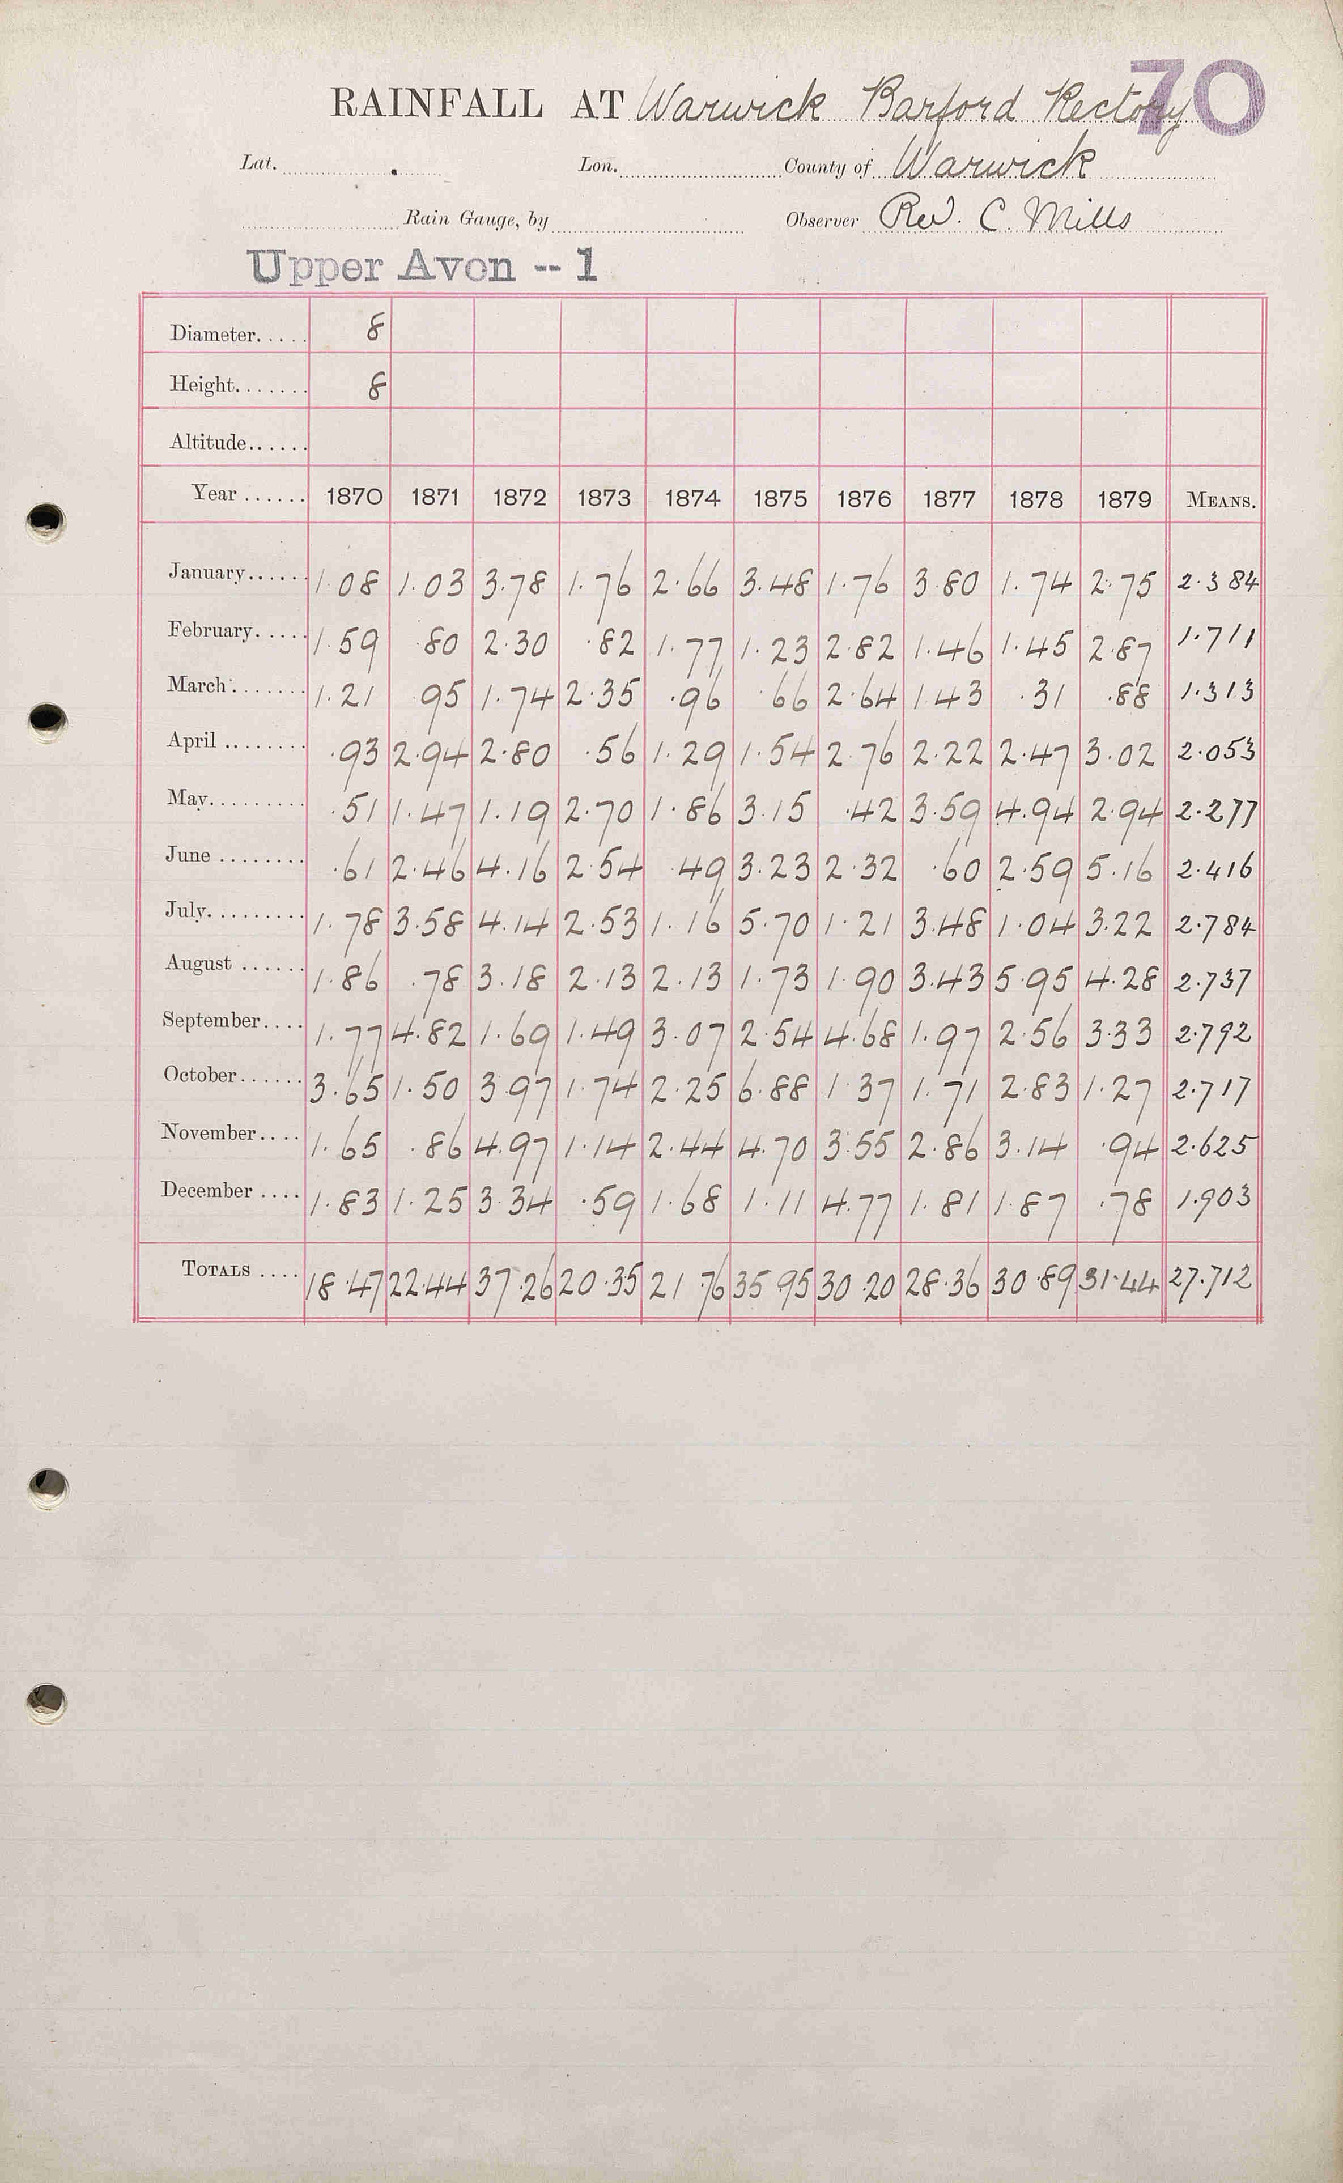 70
RAINFALL AT Warwick Barford Rectory
Lat. Lon. County of Warwick
Rain Gauge, by Observer Rev. C. Mills
Upper Avon -- 1
Diameter..... 8
Height....... 8
Altitude......
Year ...... 1870 1871 1872 1873 1874 1875 1876 1877 1878 1879 MEANS.
January...... 1.08 1.03 3.78 1.76 2.66 3.48 1.76 3.80 1.74 2.75 2.384
February..... 1.59 .80 2.30 .82 1.77 1.23 2.82 1.46 1.45 2.87 1.711
March........ 1.21 .95 1.74 2.35 .96 .66 2.64 1.43 .31 .88 1.313
April ........ .93 2.94 2.80 .56 1.29 1.54 2.76 2.22 2.47 3.02 2.053
May.......... .51 1.47 1.19 2.70 1.86 3.15 .42 3.59 4.94 2.94 2.277
June ........ .61 2.46 4.16 2.54 .49 3.23 2.32 .60 2.59 5.16 2.416
July.......... 1.78 3.58 4.14 2.53 1.16 5.70 1.21 3.48 1.04 3.22 2.784
August ...... 1.86 .78 3.18 2.13 2.13 1.73 1.90 3.43 5.95 4.28 2.737
September.... 1.77 4.82 1.69 1.49 3.07 2.54 4.68 1.97 2.56 3.33 2.792
October...... 3.65 1.50 3.97 1.74 2.25 6.88 1.37 1.71 2.83 1.27 2.717
November.... 1.65 .86 4.97 1.14 2.44 4.70 3.55 2.86 3.14 .94 2.625
December .... 1.83 1.25 3.34 .59 1.68 1.11 4.77 1.81 1.87 .78 1.903
TOTALS .... 18.47 22.44 37.26 20.35 21.76 35.95 30.20 28.36 30.89 31.44 27.712